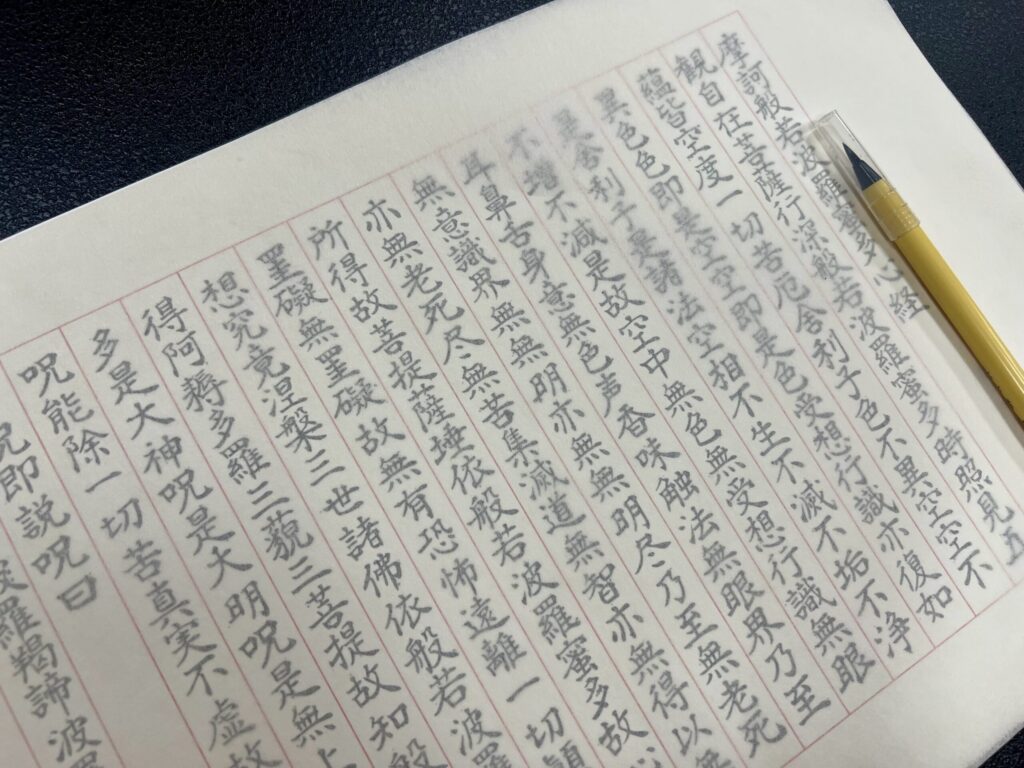 摩訶般若波羅蜜多心経
観自在菩薩行深般若波羅蜜多時照見五
蘊皆空度一切苦厄舎利子色不異空空不
異色色即是空空即是色受想行識亦復如
是舎利子是諸法空相不生不滅不垢不浄
不増不減是故空中無色無受想行識無眼
耳鼻舌身意無色声香味触法無眼界乃至
無意識界無無明亦無無明尽乃至無老死
亦無老死尽無苦集滅道無智亦無得以無
所得故菩提薩埵依般若波羅蜜多故心
罣礙無罣礙故無有恐怖遠離一切顛
想究竟涅槃三世諸佛依般若波羅
得阿耨多羅三藐三菩提故知般
多是大神呪是大明呪是無上
呪能除一切苦真実不虚故
呪即説呪曰
羅羯諦波羅